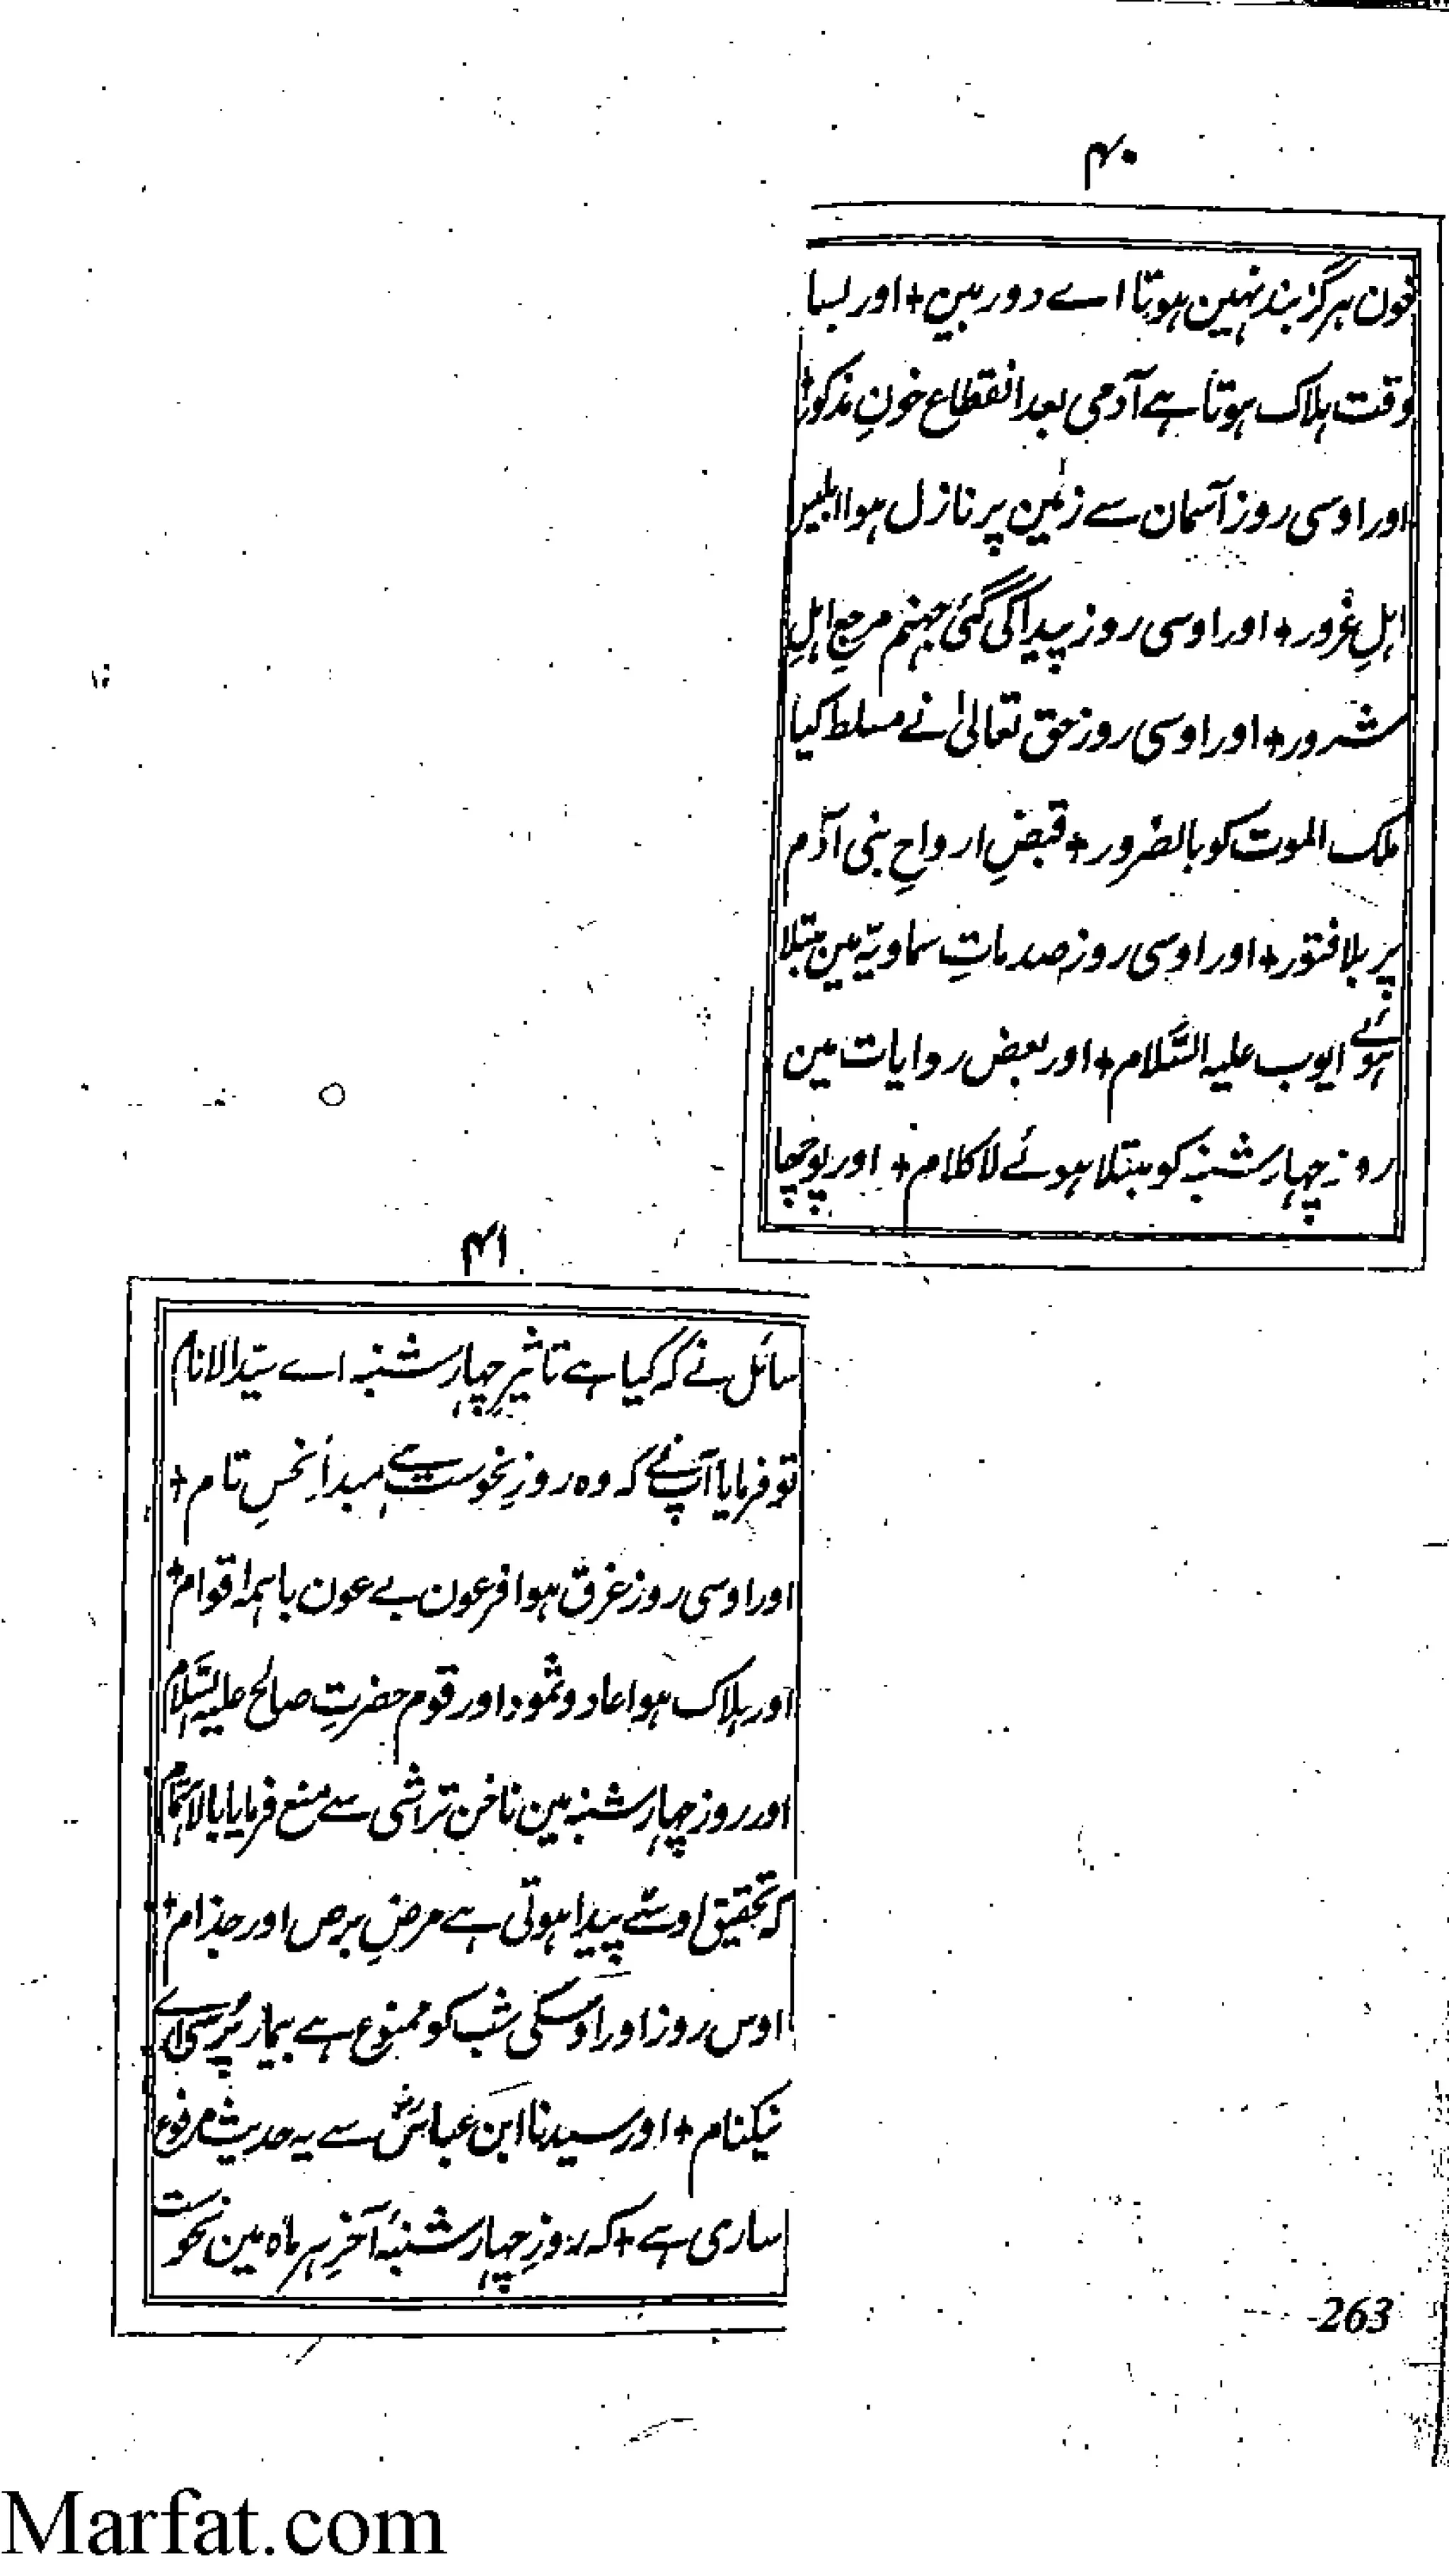 ۴۰
خون ہرگز بند نہین ہوتا اے دوربین + اور بسا
وقت ہلاک ہوتا ہے آدمی بعد انقطاع خونِ مذکور +
اور اوسی روز آسمان سے زمین پر نازل ہوا ابلیس
اہلِ غرور + اور اوسی روز پیدا کی گئی جہنم مرجعِ اہلِ
شرور + اور اوسی روز حق تعالیٰ نے مسلط کیا
ملک الموت کو بالضرور + قبضِ ارواحِ بنی آدم
پر بلا فتور + اور اوسی روز صدماتِ سماویّہ مین مبتلا
ہوئے ایوب علیہ السّلام + اور بعض روایات مین
روز چہارشنبہ کو مبتلا ہوئے لاکلام + اور پوچھا
۴۱
سائل نے کہ کیا ہے تاثیرِ چہارشنبہ اے سیّد الانام
تو فرمایا آپنے کہ وہ روزِ نحوست ہے مبدأِ نحسِ تام +
اور اوسی روز غرق ہوا فرعون بے عون باہمہ اقوام +
اور ہلاک ہوا عاد و ثمود اور قوم حضرتِ صالح علیہ السّلام
اور روز چہارشنبہ مین ناخن تراشی سے منع فرمایا بالاہتمام
کہ تحقیق اوسّے پیدا ہوتی ہے مرضِ برص اور جذام +
اوس روز اور اوسکی شب کو ممنوع ہے بیمار پرُسی اے
نیکنام + اور سیدنا ابن عباسؓ سے یہ حدیث مرفوع
ساری ہے + کہ روزِ چہارشنبۂ آخرِ ہر ماہ مین نحوست
263
Marfat.com